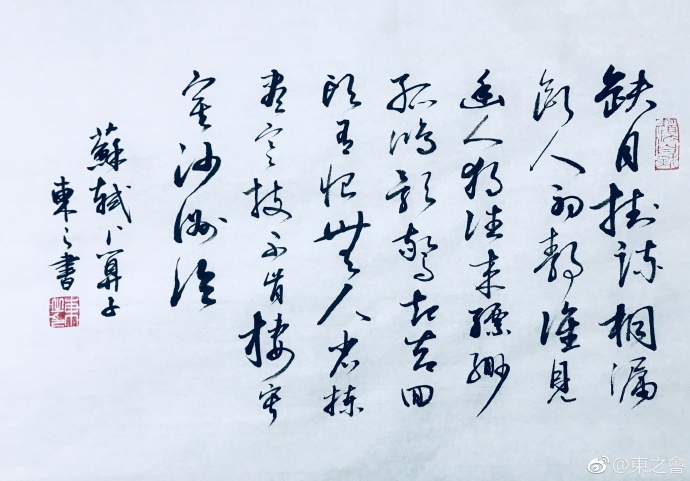 缺月挂疏桐漏
斷人初靜誰見
幽人獨往來縹緲
孤鴻影驚起却回
頭有恨無人省揀
盡寒枝不肯棲寂
寞沙洲冷
蘇軾卜算子
東之書
@東之會